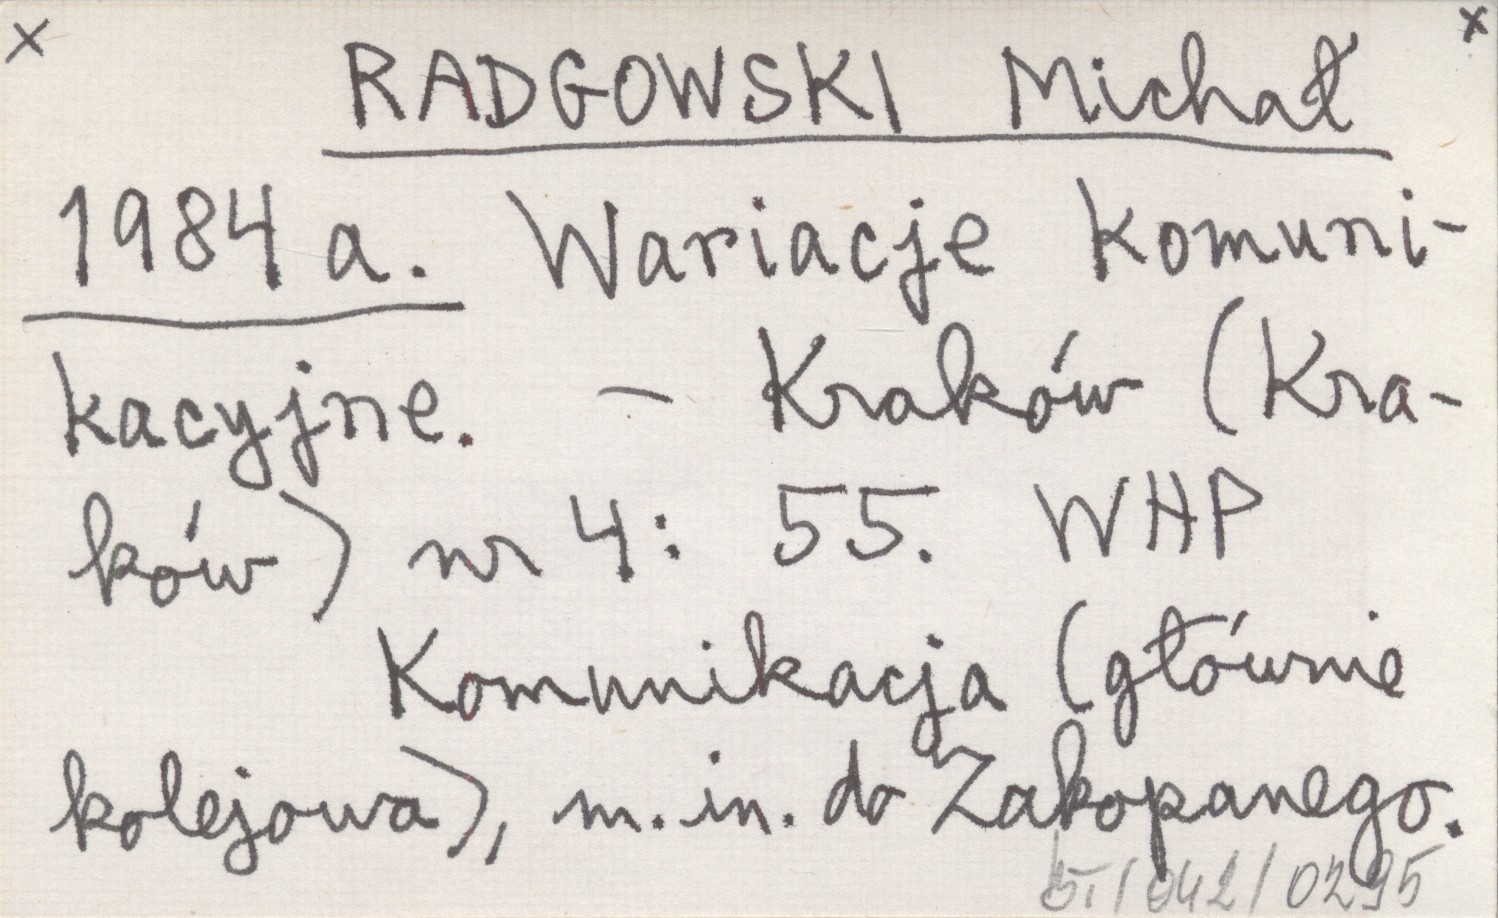 x x
RADGOWSKI Michał
1984 a. Wariacje komuni-
kacyjne. – Kraków (Kra-
ków) nr 4: 55. WHP
Komunikacja (głównie
kolejowa), m.in. do Zakopanego.
/042/0295